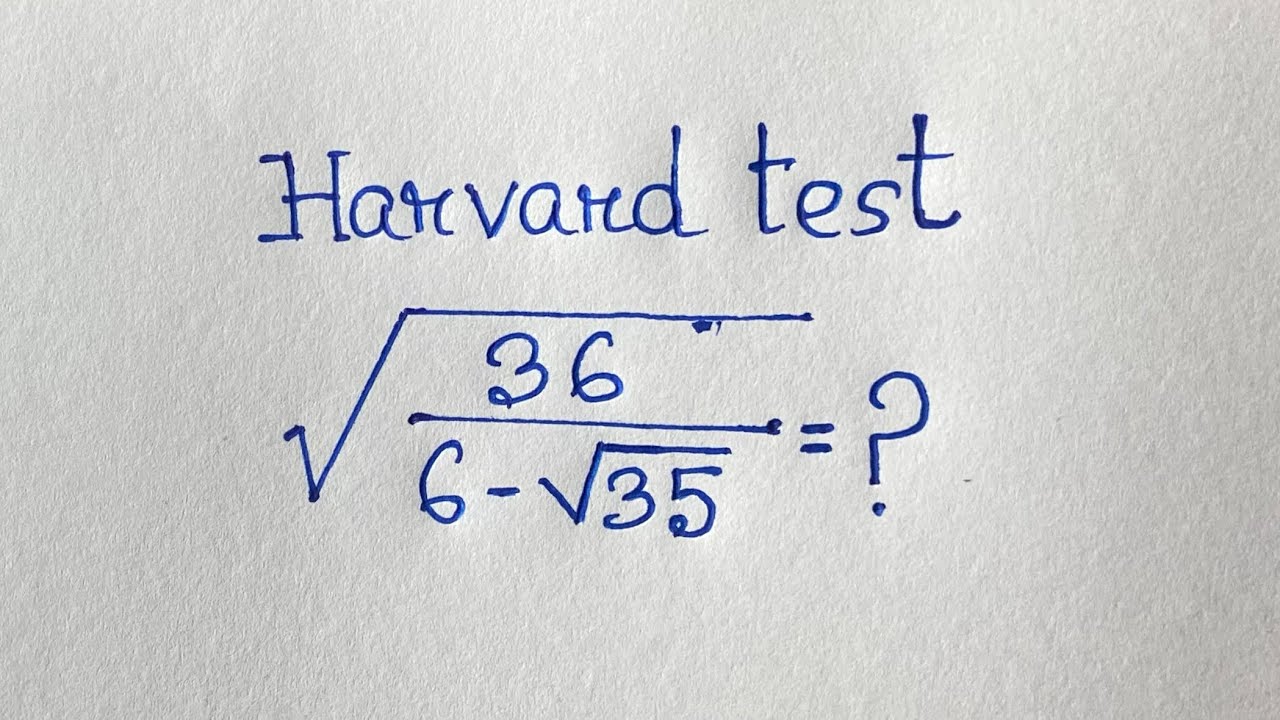 Harvard test
√(36/(6-√35)) = ?